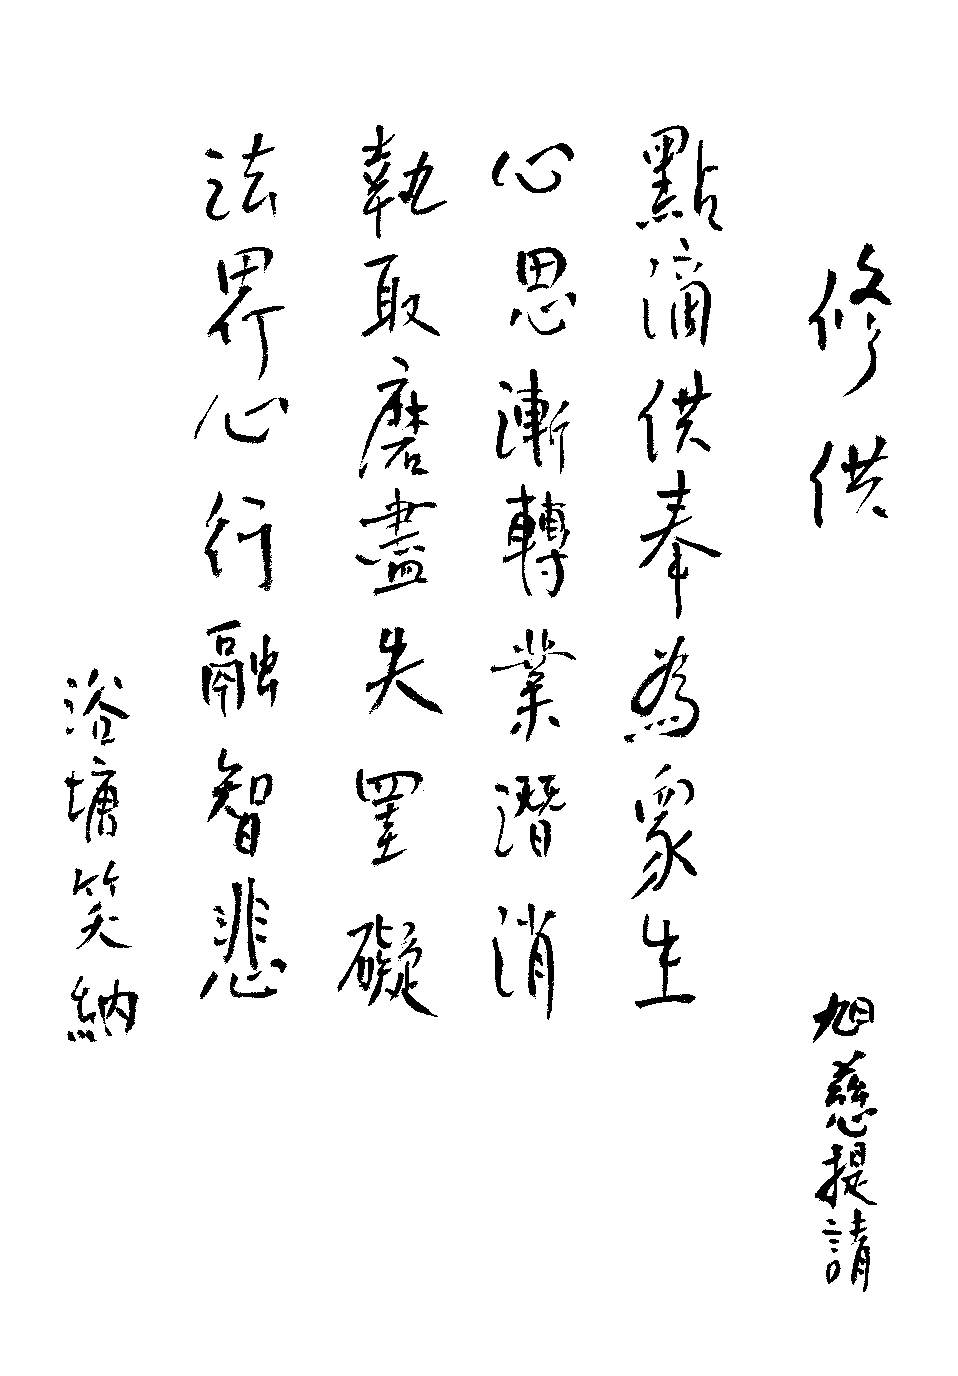 修供
旭慈提請
點滴供奉為眾生
心思漸轉業潛消
執取磨盡失罣礙
法界心行融智悲
浴墉笑納